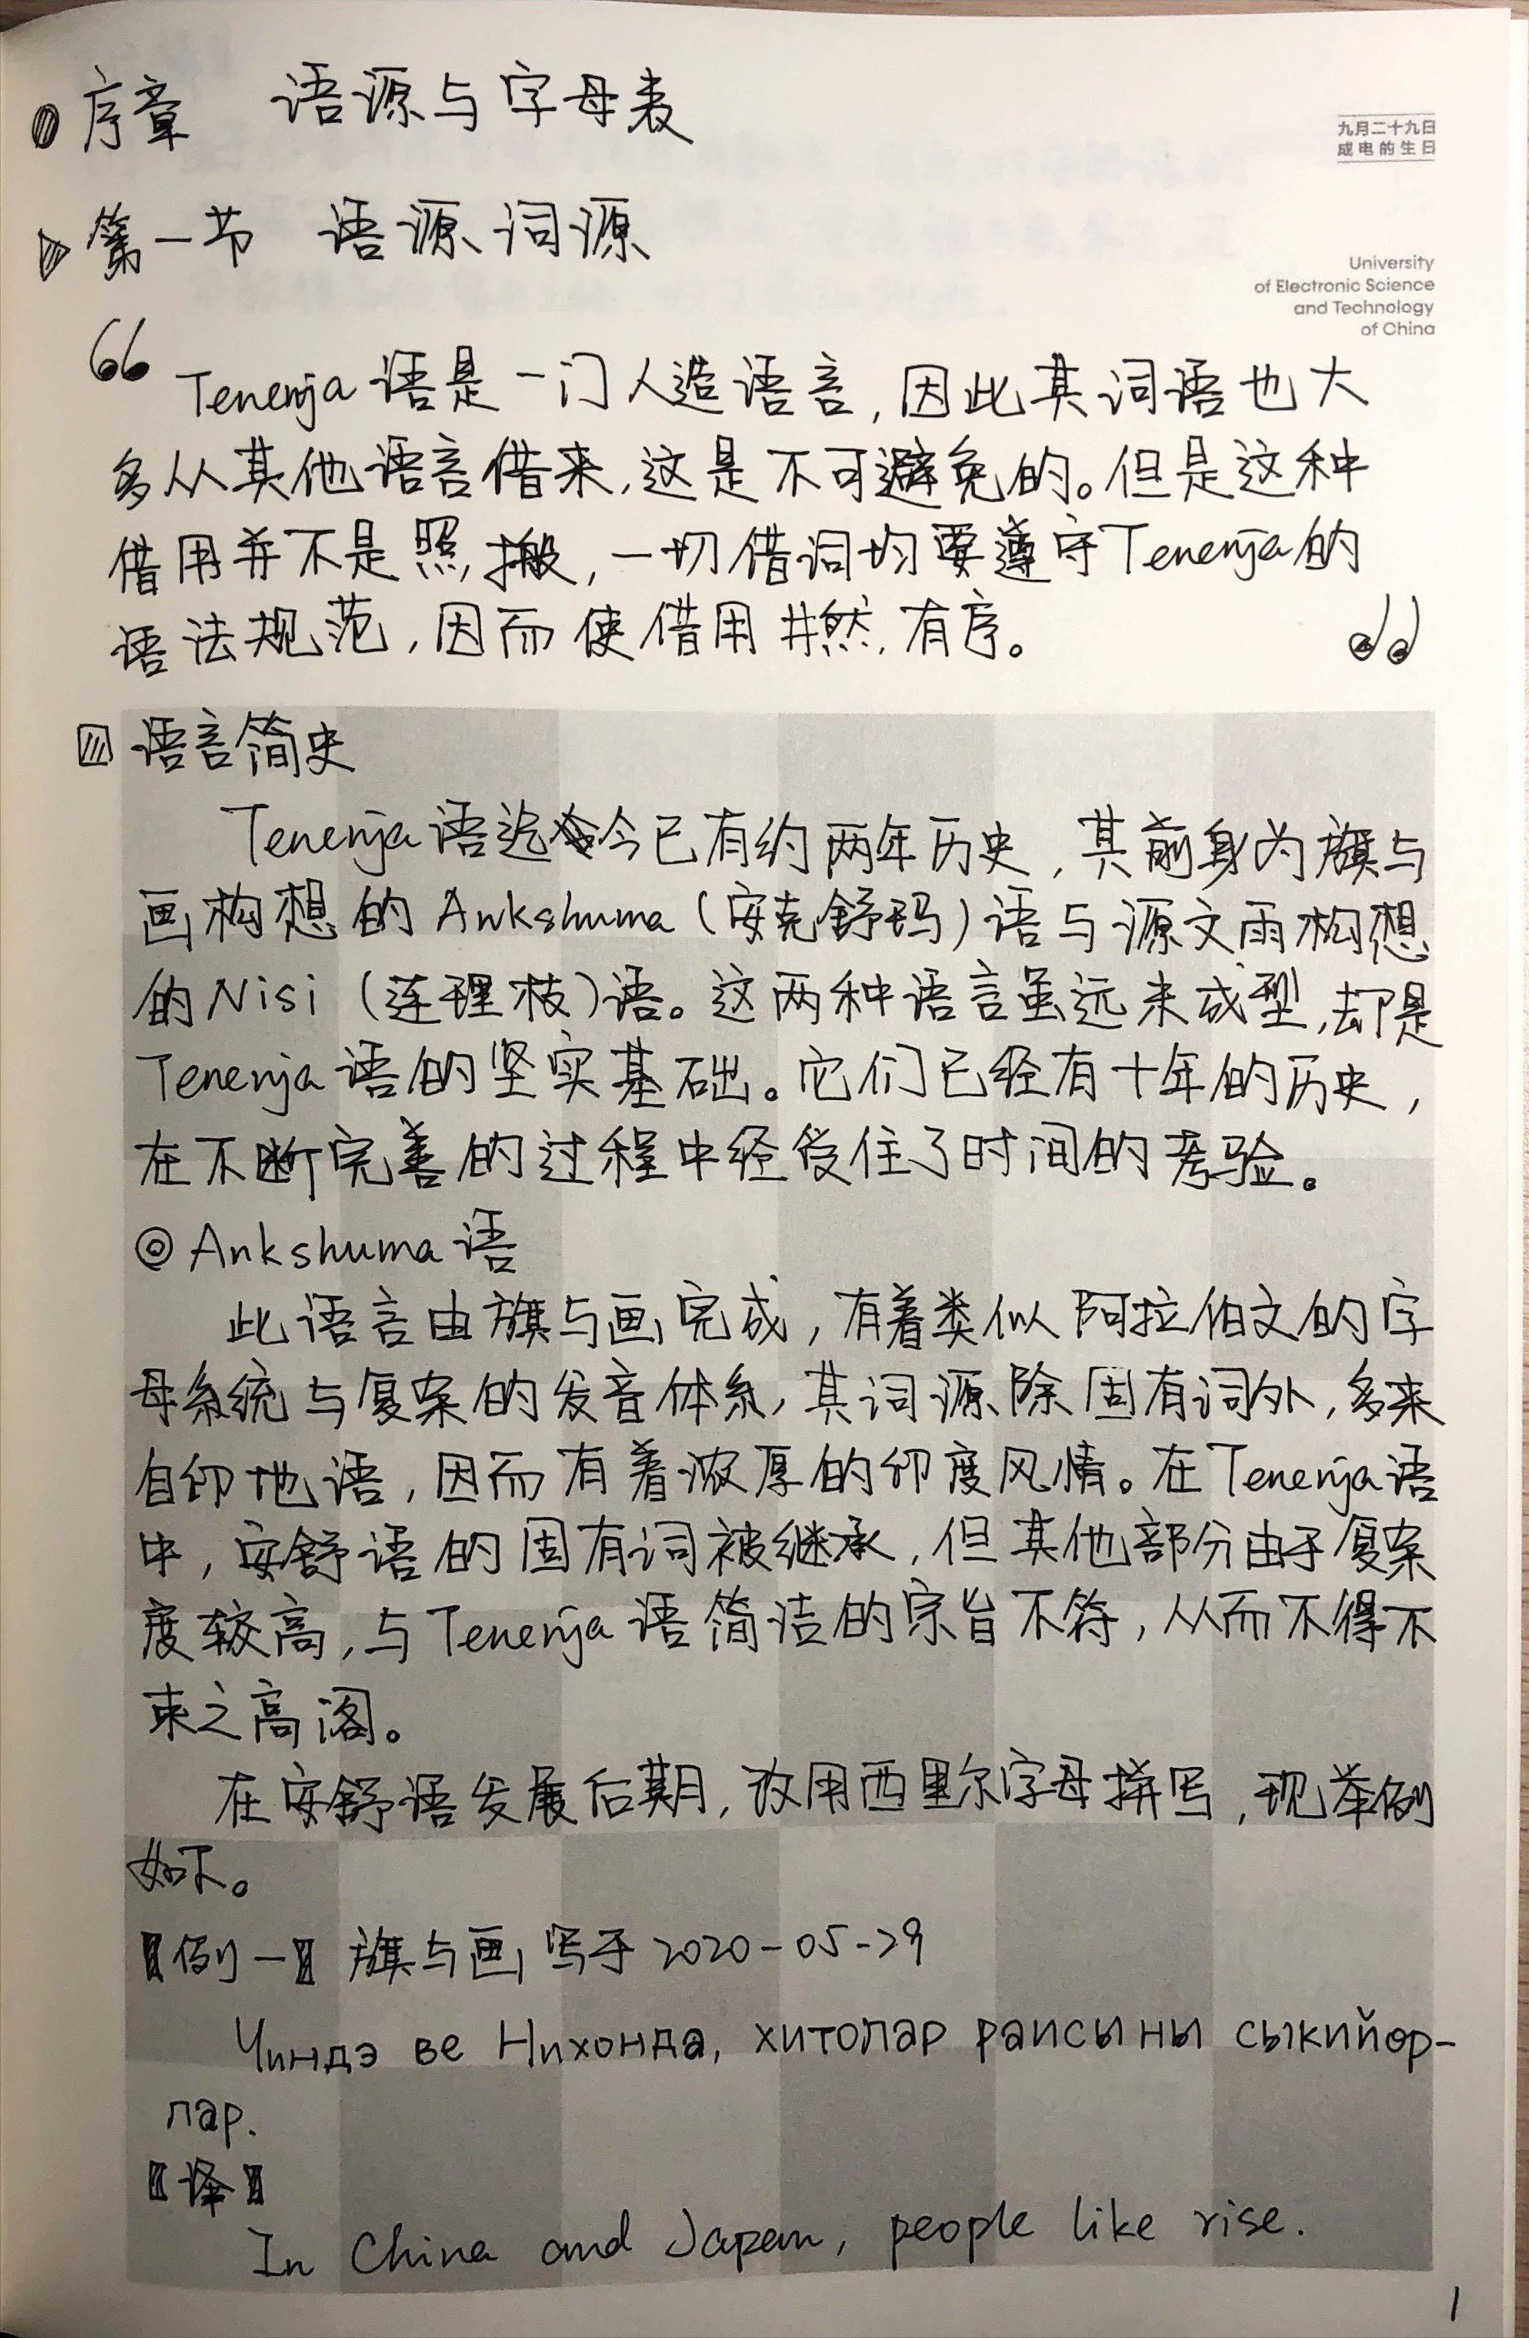 序章 语源与字母表
九月二十九日
成电的生日
第一节 语源、词源
University
of Electronic Science
and Technology
of China
“Tenenja语是一门人造语言,因此其词语也大
多从其他语言借来,这是不可避免的。但是这种
借用并不是照搬,一切借词均要遵守Tenenja的
语法规范,因而使借用井然有序。”
语言简史
Tenenja语迄今已有约两年历史,其前身为旗与
画构想的Ankshuma(安克舒玛)语与源文雨构想
的Nisi(连理枝)语。这两种语言虽远未成型,却是
Tenenja语的坚实基础。它们已经有十年的历史,
在不断完善的过程中经受住了时间的考验。
◎Ankshuma语
此语言由旗与画完成,有着类似阿拉伯文的字
母系统与复杂的发音体系,其词源除固有词外,多来
自印地语,因而有着浓厚的印度风情。在Tenenja语
中,安舒语的固有词被继承,但其他部分由于复杂
度较高,与Tenenja语简洁的宗旨不符,从而不得不
束之高阁。
在安舒语发展后期,改用西里尔字母拼写,现举例
如下。
【例一】旗与画写于2020-05-29
Чиндэ ве Нихонда, хитолар раисыны сыкийор-
лар.
【译】
In China and Japan, people like rise.
1